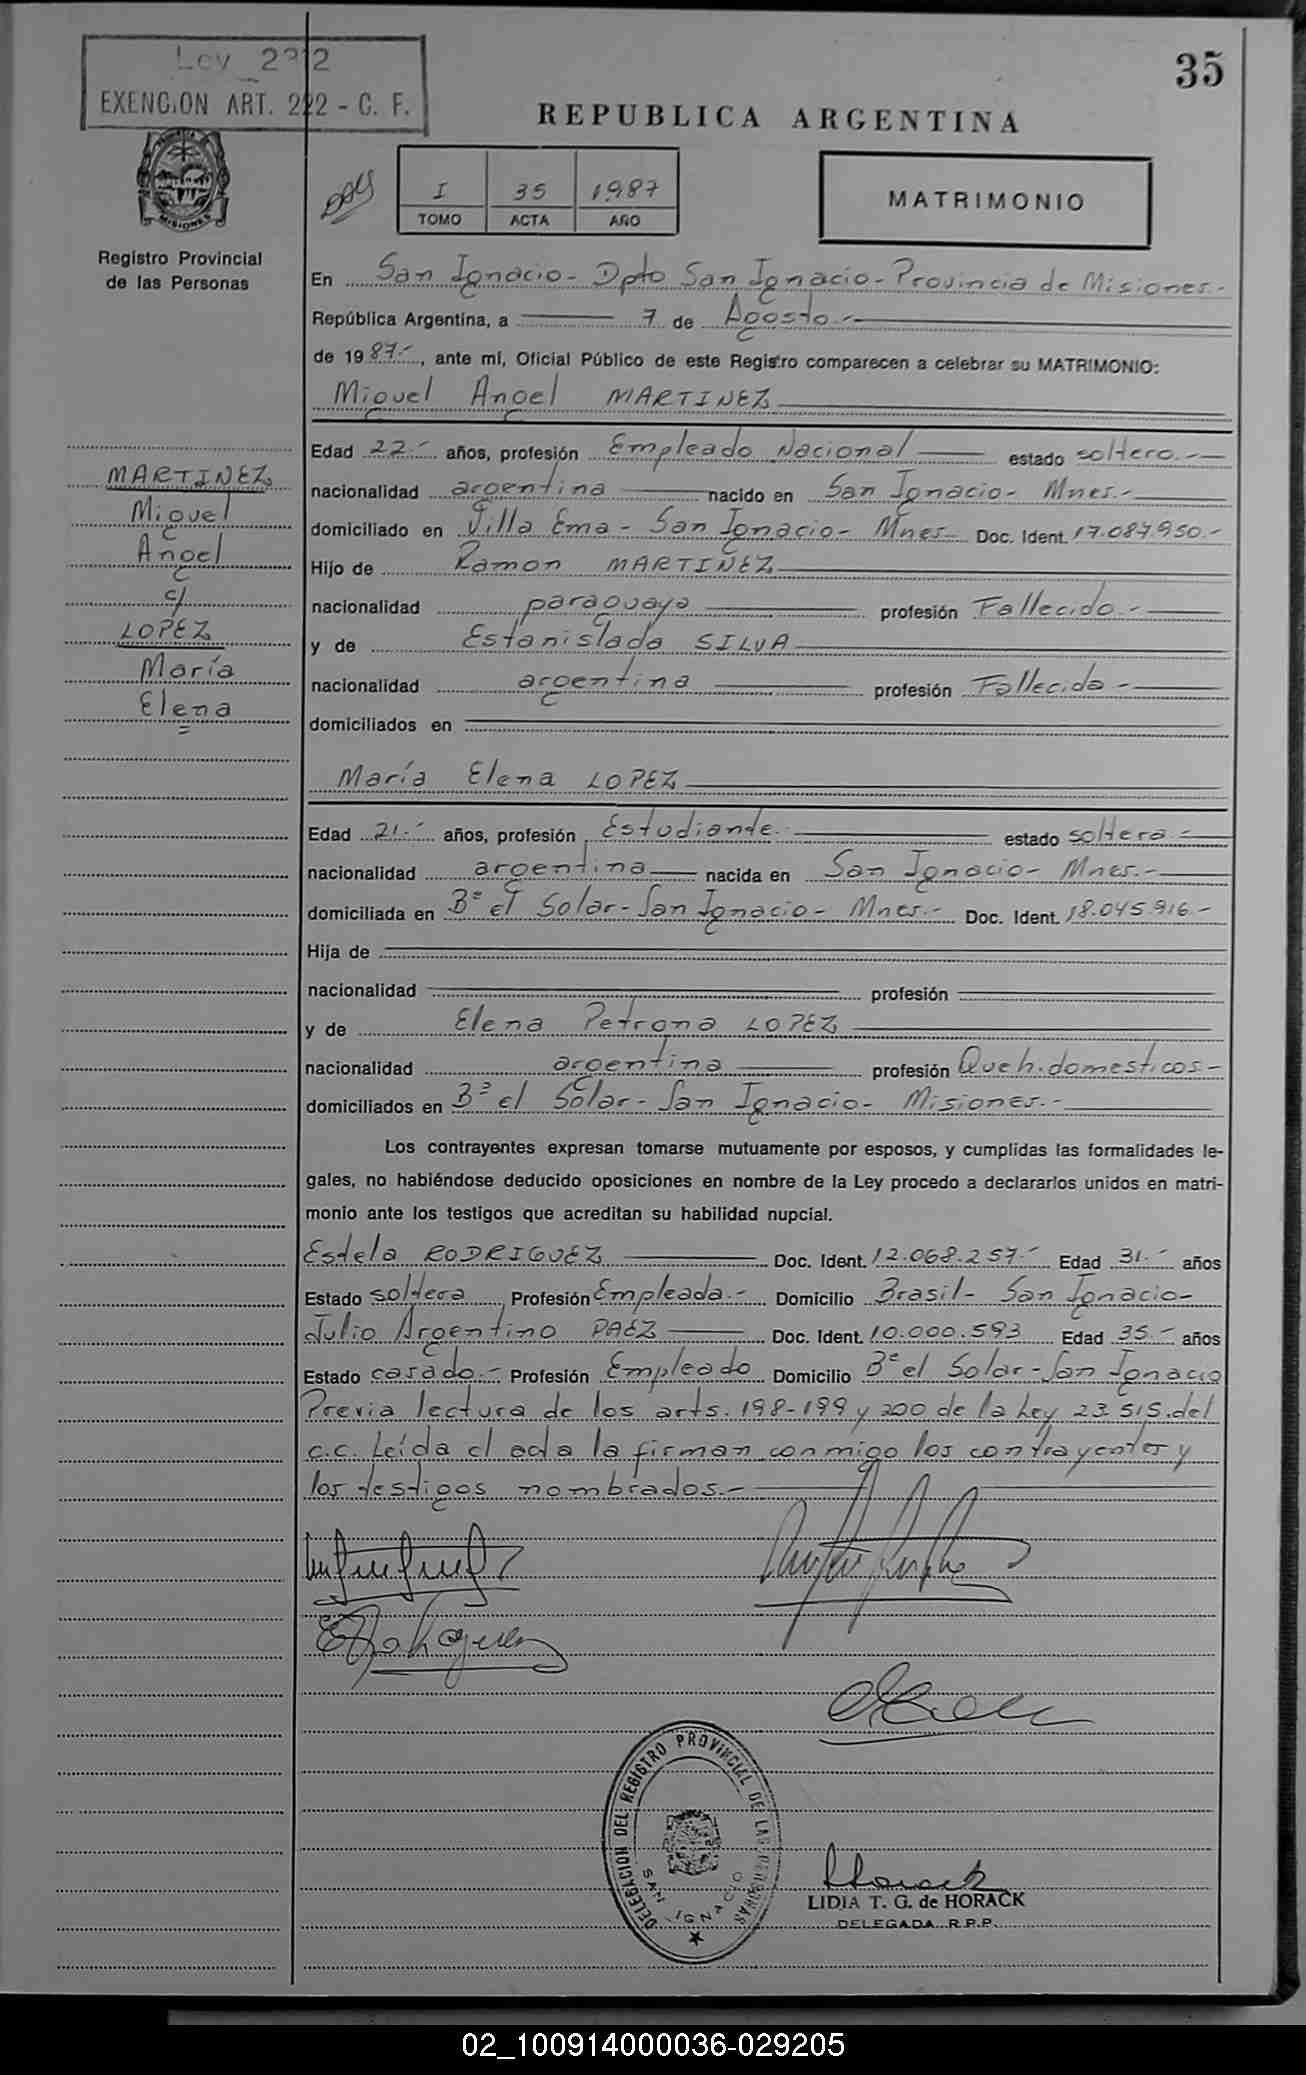 35
EXENCION ART. 222 - C. F.
REPUBLICA ARGENTINA
MISIONES
Registro Provincial
de las Personas
I 35 1987
TOMO ACTA AÑO
MATRIMONIO
En San Ignacio - Dpto San Ignacio - Provincia de Misiones.-
República Argentina, a 7 de Agosto.-
de 1987.-, ante mí, Oficial Público de este Registro comparecen a celebrar su MATRIMONIO:
Miguel Angel MARTINEZ
MARTINEZ
Miguel
Angel
c/
LOPEZ
María
Elena
Edad 22.- años, profesión Empleado Nacional estado soltero.-
nacionalidad argentina nacido en San Ignacio - Mnes.-
domiciliado en Villa Ema - San Ignacio - Mnes.- Doc. Ident. 17.087.950.-
Hijo de Ramon MARTINEZ
nacionalidad paraguaya profesión Fallecido.-
y de Estanislada SILVA
nacionalidad argentina profesión Fallecida -
domiciliados en
María Elena LOPEZ
Edad 21.- años, profesión Estudiante.- estado soltera -
nacionalidad argentina nacida en San Ignacio - Mnes.-
domiciliada en B° el Solar - San Ignacio - Mnes.- Doc. Ident. 18.045.916.-
Hija de
nacionalidad profesión
y de Elena Petrona LOPEZ
nacionalidad argentina profesión Queh. domesticos -
domiciliados en B° el Solar - San Ignacio - Misiones.-
Los contrayentes expresan tomarse mutuamente por esposos, y cumplidas las formalidades le-
gales, no habiéndose deducido oposiciones en nombre de la Ley procedo a declararlos unidos en matri-
monio ante los testigos que acreditan su habilidad nupcial.
Estela RODRIGUEZ Doc. Ident. 12.068.257.- Edad 31.- años
Estado soltera Profesión Empleada.- Domicilio Brasil - San Ignacio -
Julio Argentino PAEZ Doc. Ident. 10.000.593 Edad 35.- años
Estado casado.- Profesión Empleado Domicilio B° el Solar - San Ignacio
Previa lectura de los arts. 198-199 y 200 de la Ley 23.515. del
c.c. Leída el acta la firman conmigo los contrayentes y
los testigos nombrados.-
DELEGACION DEL REGISTRO PROVINCIAL DE LAS PERSONAS
SAN IGNACIO
LIDIA T. G. de HORACK
DELEGADA R.P.P.
02_100914000036-029205